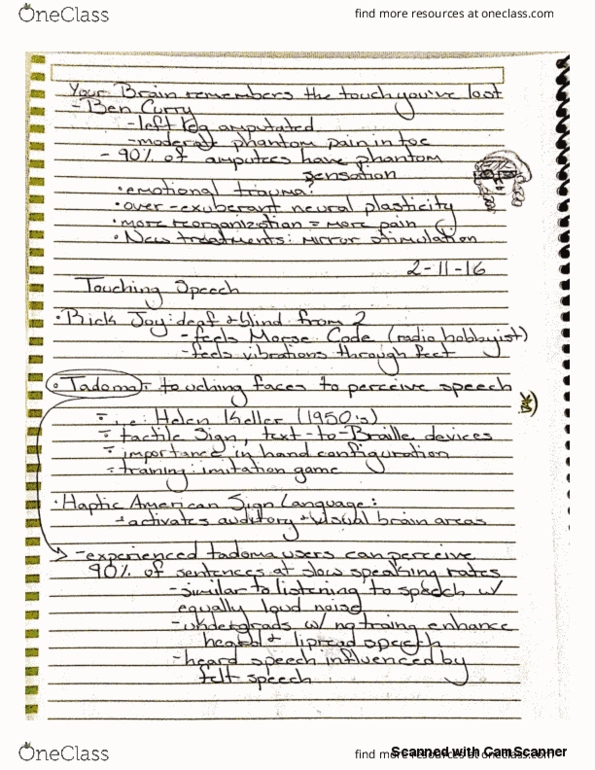 OneClass
find more resources at oneclass.com
Your Brain remembers the touch you've lost
- Ben Curry
- left leg amputated
- moderate phantom pain in toe
- 90% of amputees have phantom
sensation
• emotional trauma?
• over-exuberant neural plasticity
• more reorganization = more pain
• New treatments: mirror stimulation
2-11-16
Touching Speech
• Rick Joy: deaf + blind from 2
- feels Morse Code (radio hobbyist)
- feels vibrations through feet
• Tadoma: touching faces to perceive speech
- i.e. Helen Keller (1950's)
- tactile sign, text-to-Braille devices
- importance in hand configuration
- training: imitation game
• Haptic American Sign Language:
- activates auditory + visual brain areas
- experienced tadoma users can perceive
90% of sentences at slow speaking rates
- similar to listening to speech w/
equally loud noise
- undergrads w/ no traing enhance
heard + lipread speech
- heard speech influenced by
felt speech
OneClass
find more resources at oneclass.com
Scanned with CamScanner